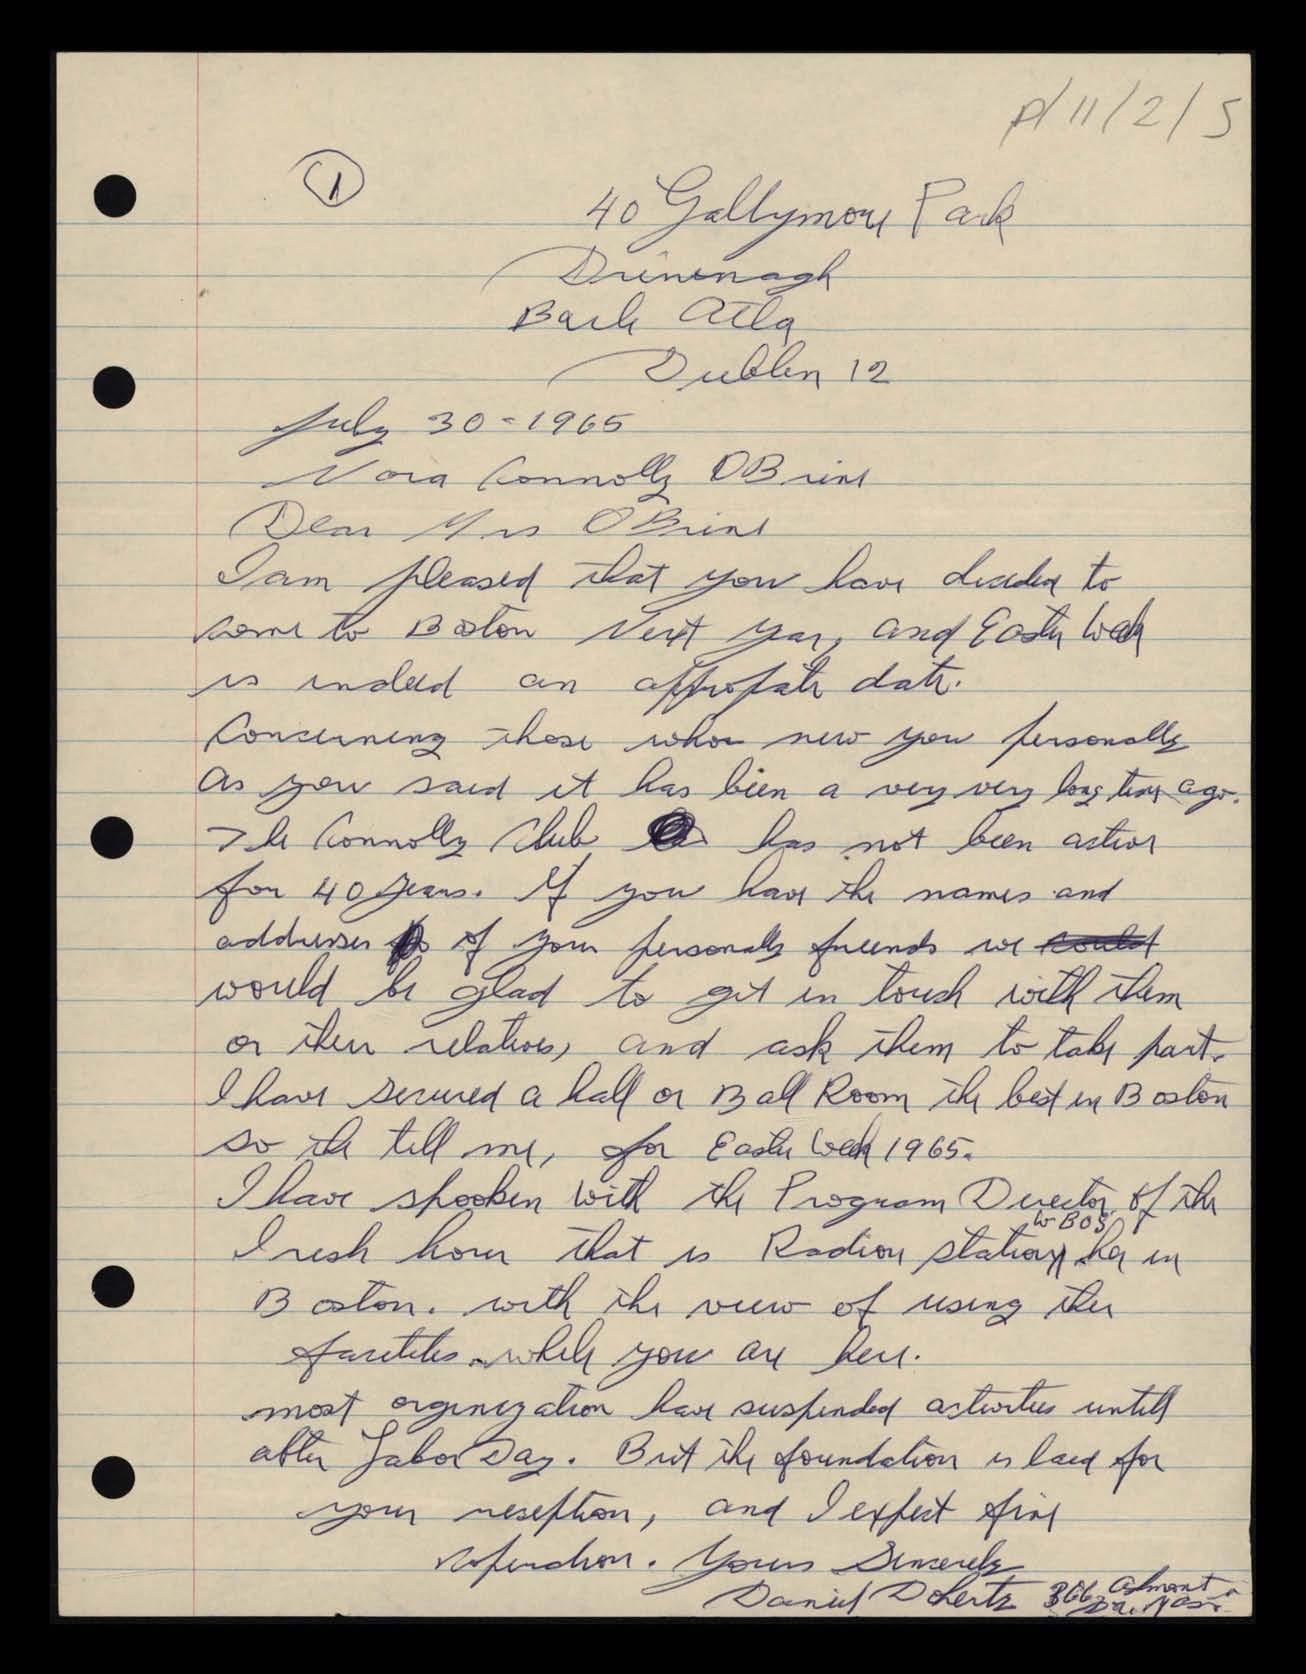 P/11/2/5
1
40 Gallymore Park
Drimnagh
Baile Atla
Dublin 12
July 30-1965
Nora Connolly OBrine
Dear Mrs O'Brine
I am pleased that you have decided to
come to Boston Next year, and Easter Week
is indeed an date.
Concerning those who new you personally
as you said it has been a very very long time ago.
The Connolly Club has not been active
for 40 years. If you have the names and
addresses of your personally friends we could
would be glad to get in touch with them
or their relatives, and ask them to take part.
I have secured a hall or Ball Room the best in Boston
so the tell me, for Easter Week 1965.
I have spooken with the Program Director of the
Irish hour that is Radion station WBOS her in
Boston. with the view of using ther
while you are here.
most orginization have suspended activities untill
after Labor Day. But the foundation is laid for
your reseption, and I expect fine
Yours Sincerely
Daniel Doherty 366 Ashmont
Mass.